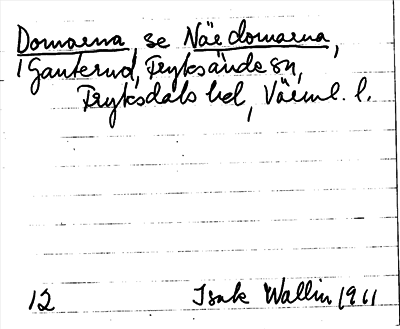 Domarna, se Näs domarna,
i Ganterud, Fryksände sn,
Fryksdals hd, Värml. l.
12 Isak Wallin 1911